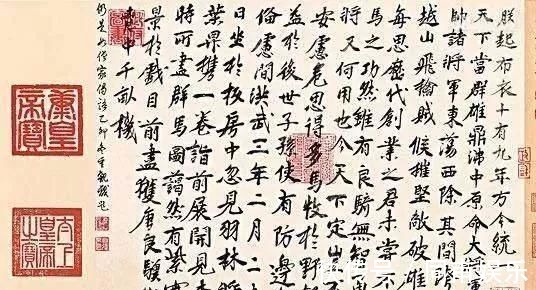 朕起布衣十有九年方今統一
天下當群雄鼎沸中原命大將軍
帥諸將軍東蕩西除其間跨
越山飛擒賊候摧堅敵破雄
每思歷代創業之君未嘗不
馬之功然雖有良騎無智
將又何用也今天下定豈
安慮危思得多馬牧於野
益於後世子孫使有防邊
備慮間洪武三年二月二十
日坐於板房中忽見羽林
葉昇攜一卷詣前展開見
時所畫群馬圖藹然有紫雲
景於戲目前盡獲唐良驥
中千畝機
太上皇帝之寶